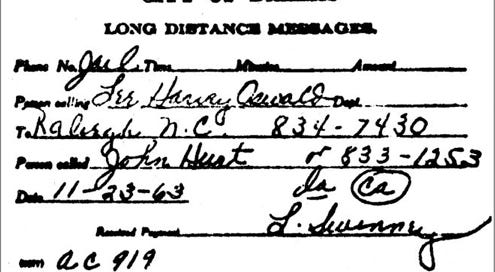 LONG DISTANCE MESSAGES.
Phone No. Jail Time Minutes Amount
Person calling Lee Harvey Oswald Dept.
To Raleigh N.C. 834-7430
Person called John Hurt or 833-1253
Date 11-23-63 da (ca)
Received Payment L. Swinney
ac 919